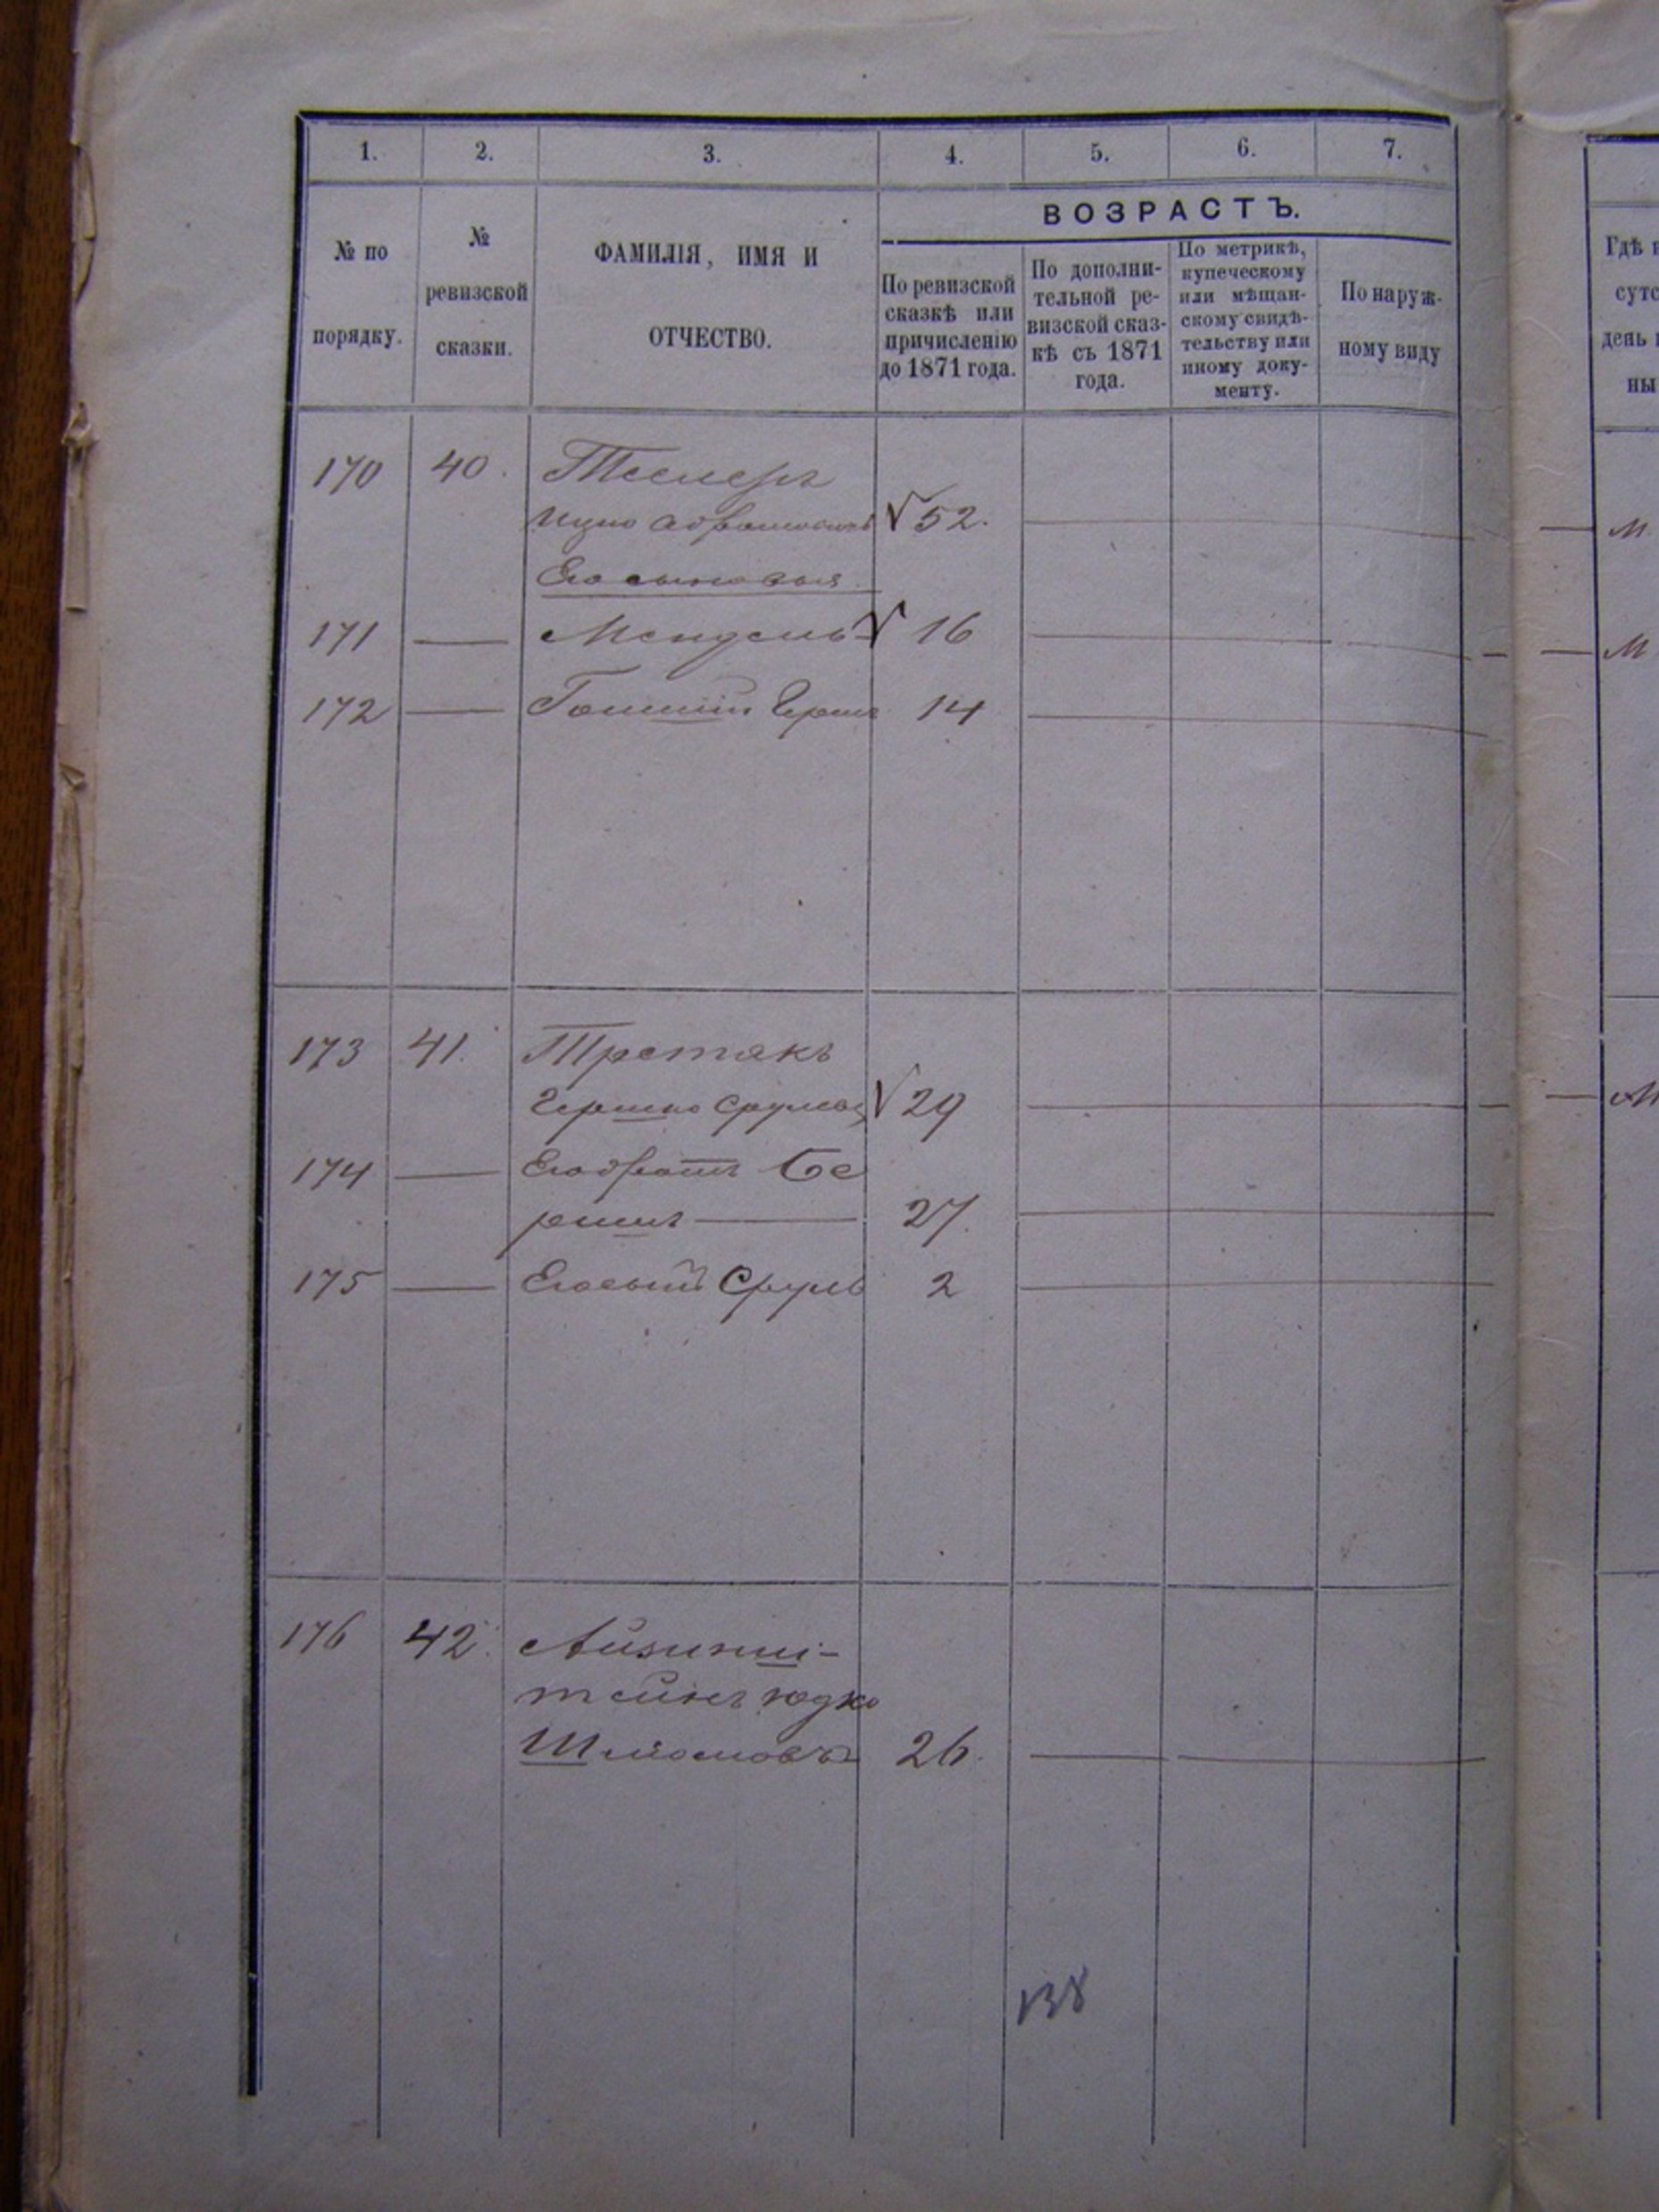 1. 2. 3. 4. 5. 6. 7.
№ по порядку.
№ ревизской сказки.
ФАМИЛІЯ, ИМЯ И ОТЧЕСТВО.
ВОЗРАСТЪ.
По ревизской сказкѣ или причисленію до 1871 года.
По дополни-
тельной ре-
визской сказ-
кѣ съ 1871
года.
По метрикѣ,
купеческому
или мѣщан-
скому свидѣ-
тельству или
иному доку-
менту.
По наруж-
ному виду
Гдѣ
день
170 40. Теслеръ
Ицко Абрамовичъ 52.
Его сыновья
171 — Мендель 16
172 — Гершъ 14
173 41. Третякъ
Гершко Срулевъ 29
174 — Его братъ Бе
ришъ — 27.
175 — Его сынъ Сруль 2
176 42. Айзинш-
тейнъ Юдко
Шлiомовъ 26.
138